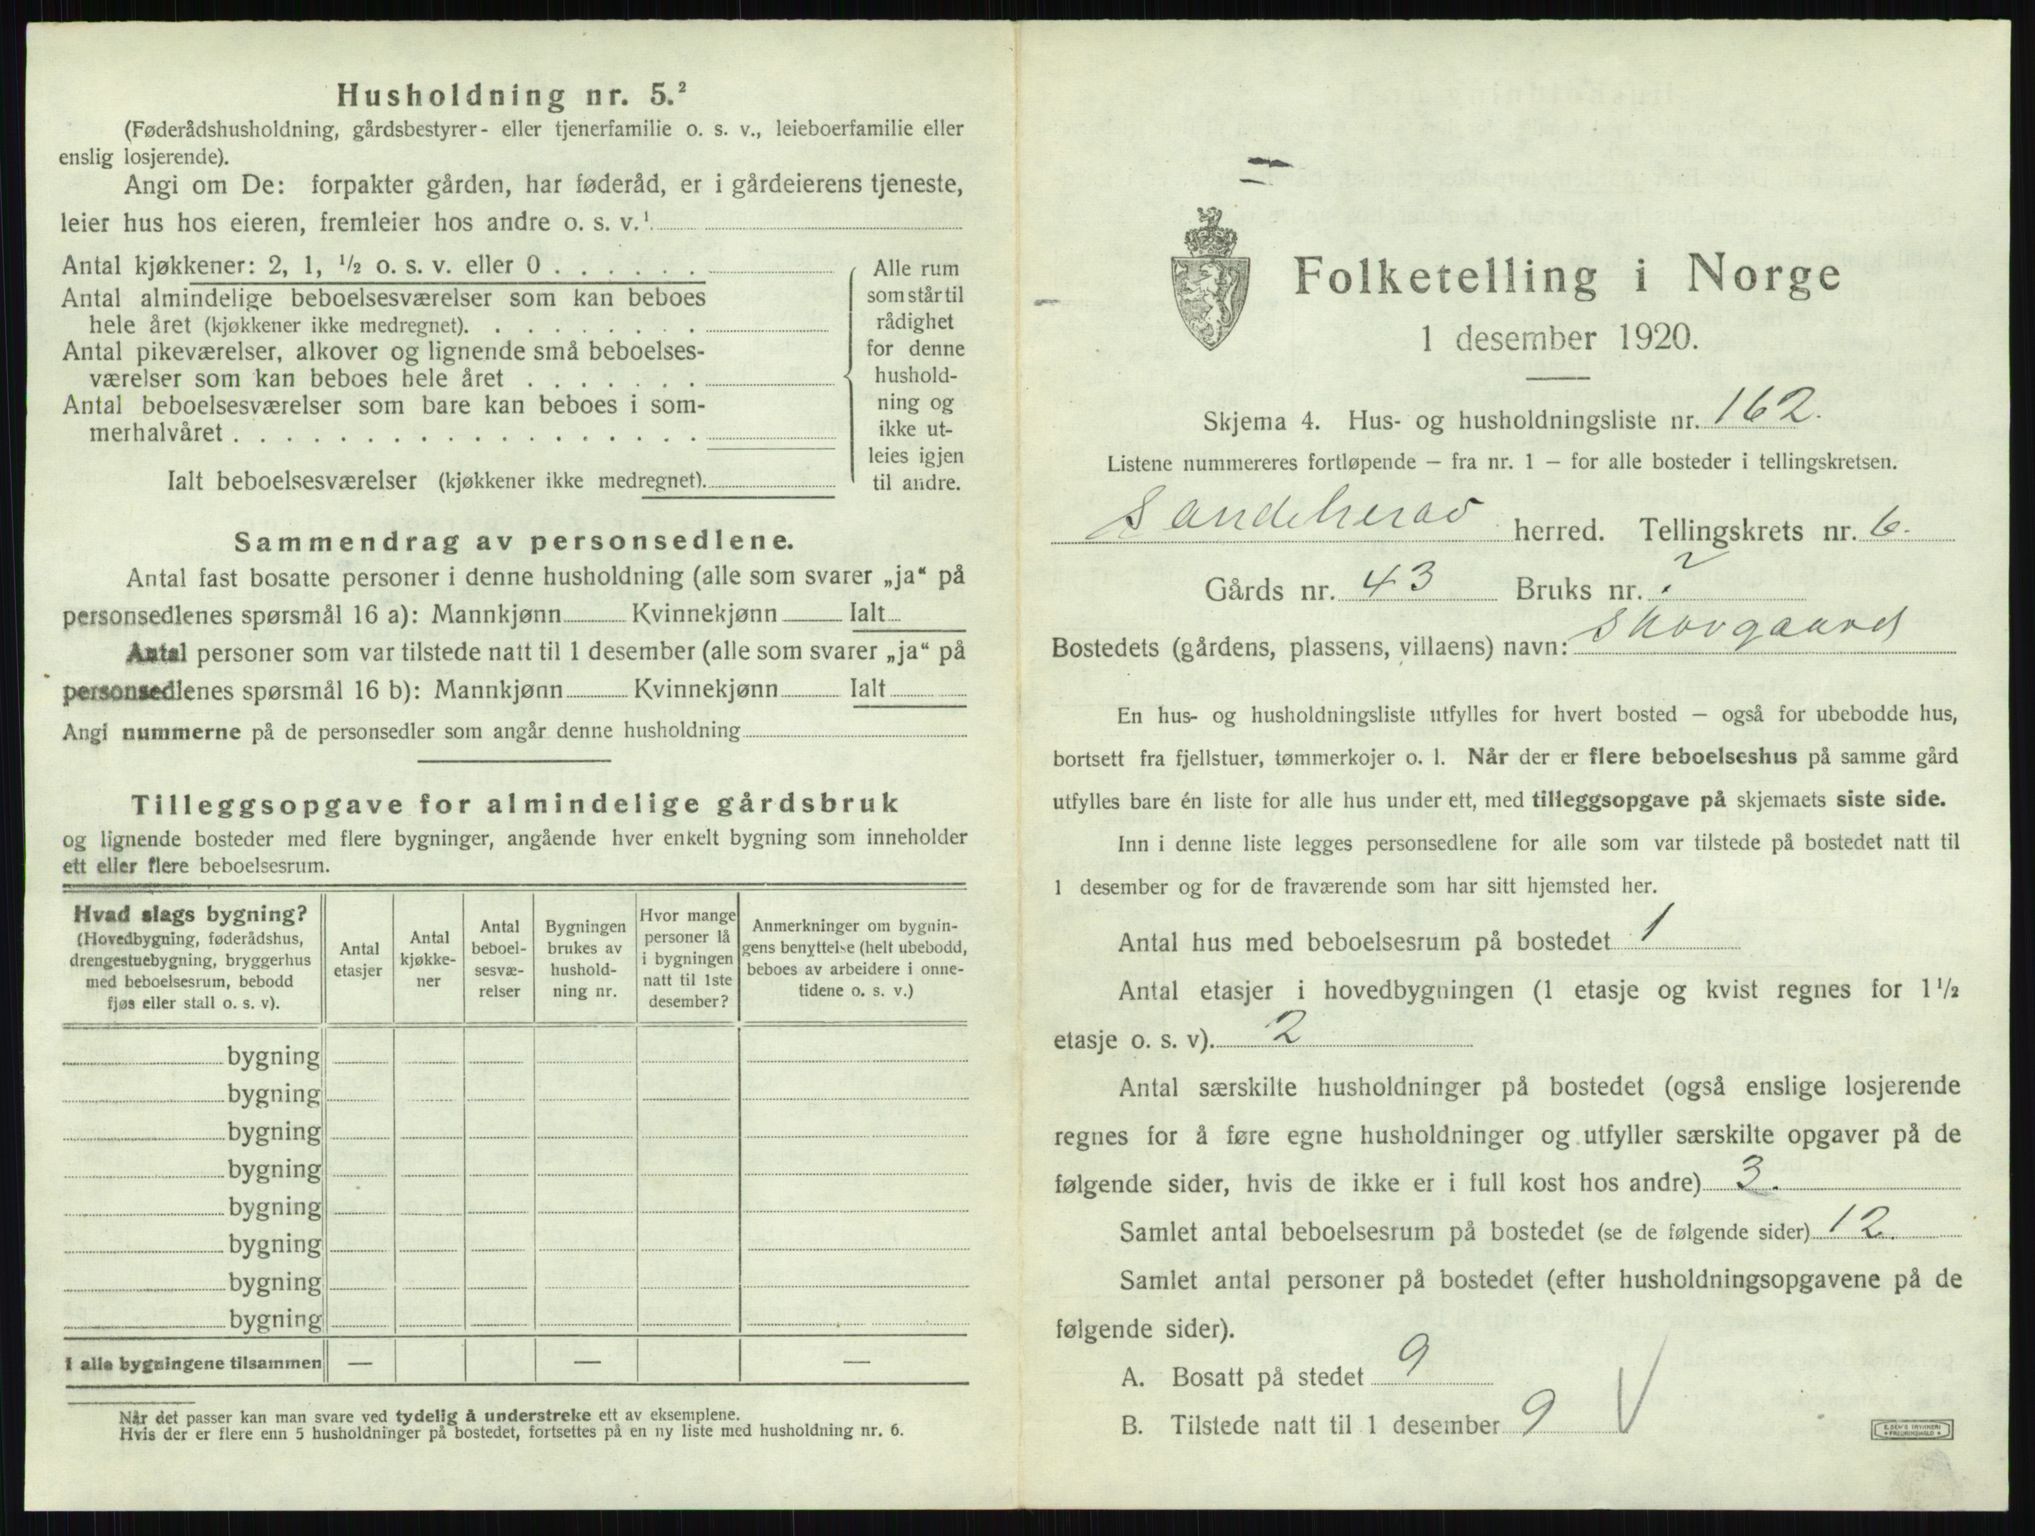 Husholdning nr. 5.²
(Føderådshusholdning, gårdsbestyrer- eller tjenerfamilie o. s. v., leieboerfamilie eller
enslig losjerende).
Angi om De: forpakter gården, har føderåd, er i gårdeierens tjeneste,
leier hus hos eieren, fremleier hos andre o. s. v.¹
Antal kjøkkener: 2, 1, ½ o. s. v. eller 0 . . . . . .
Antal almindelige beboelsesværelser som kan beboes
hele året (kjøkkener ikke medregnet). . . . . . . . .
Antal pikeværelser, alkover og lignende små beboelses-
værelser som kan beboes hele året . . . . . . .
Antal beboelsesværelser som bare kan beboes i som-
merhalvåret . . . . . . . . . . . . . . . . . .
Ialt beboelsesværelser (kjøkkener ikke medregnet).
Alle rum
som står til
rådighet
for denne
hushold-
ning og
ikke ut-
leies igjen
til andre.
Sammendrag av personsedlene.
Antal fast bosatte personer i denne husholdning (alle som svarer „ja“ på
personsedlenes spørsmål 16 a): Mannkjønn Kvinnekjønn Ialt
Antal personer som var tilstede natt til 1 desember (alle som svarer „ja“ på
personsedlenes spørsmål 16 b): Mannkjønn Kvinnekjønn Ialt
Angi nummerne på de personsedler som angår denne husholdning
Tilleggsopgave for almindelige gårdsbruk
og lignende bosteder med flere bygninger, angående hver enkelt bygning som inneholder
ett eller flere beboelsesrum.
Hvad slags bygning?
(Hovedbygning, føderådshus,
drengestuebygning, bryggerhus
med beboelsesrum, bebodd
fjøs eller stall o. s. v).
Antal
etasjer
Antal
kjøkke-
ner
Antal
beboel-
sesvæ-
relser
Bygningen
brukes av
hushold-
ning nr.
Hvor mange
personer lå
i bygningen
natt til 1ste
desember?
Anmerkninger om bygnin-
gens benyttelse (helt ubebodd,
beboes av arbeidere i onne-
tidene o. s. v.)
bygning
bygning
bygning
bygning
bygning
bygning
bygning
bygning
I alle bygningene tilsammen — — —
Når det passer kan man svare ved tydelig å understreke ett av eksemplene.
Hvis der er flere enn 5 husholdninger på bostedet, fortsettes på en ny liste med husholdning nr. 6.
Folketelling i Norge
1 desember 1920.
Skjema 4. Hus- og husholdningsliste nr. 162.
Listene nummereres fortløpende — fra nr. 1 — for alle bosteder i tellingskretsen.
Sandeherad herred. Tellingskrets nr. 6.
Gårds nr. 43 Bruks nr. ?
Bostedets (gårdens, plassens, villaens) navn: Skovgaard
En hus- og husholdningsliste utfylles for hvert bosted — også for ubebodde hus,
bortsett fra fjellstuer, tømmerkojer o. l. Når der er flere beboelseshus på samme gård
utfylles bare én liste for alle hus under ett, med tilleggsopgave på skjemaets siste side.
Inn i denne liste legges personsedlene for alle som var tilstede på bostedet natt til
1 desember og for de fraværende som har sitt hjemsted her.
Antal hus med beboelsesrum på bostedet 1
Antal etasjer i hovedbygningen (1 etasje og kvist regnes for 1½
etasje o. s. v). 2
Antal særskilte husholdninger på bostedet (også enslige losjerende
regnes for å føre egne husholdninger og utfyller særskilte opgaver på de
følgende sider, hvis de ikke er i full kost hos andre) 3.
Samlet antal beboelsesrum på bostedet (se de følgende sider) 12.
Samlet antal personer på bostedet (efter husholdningsopgavene på de
følgende sider).
A. Bosatt på stedet 9
B. Tilstede natt til 1 desember 9